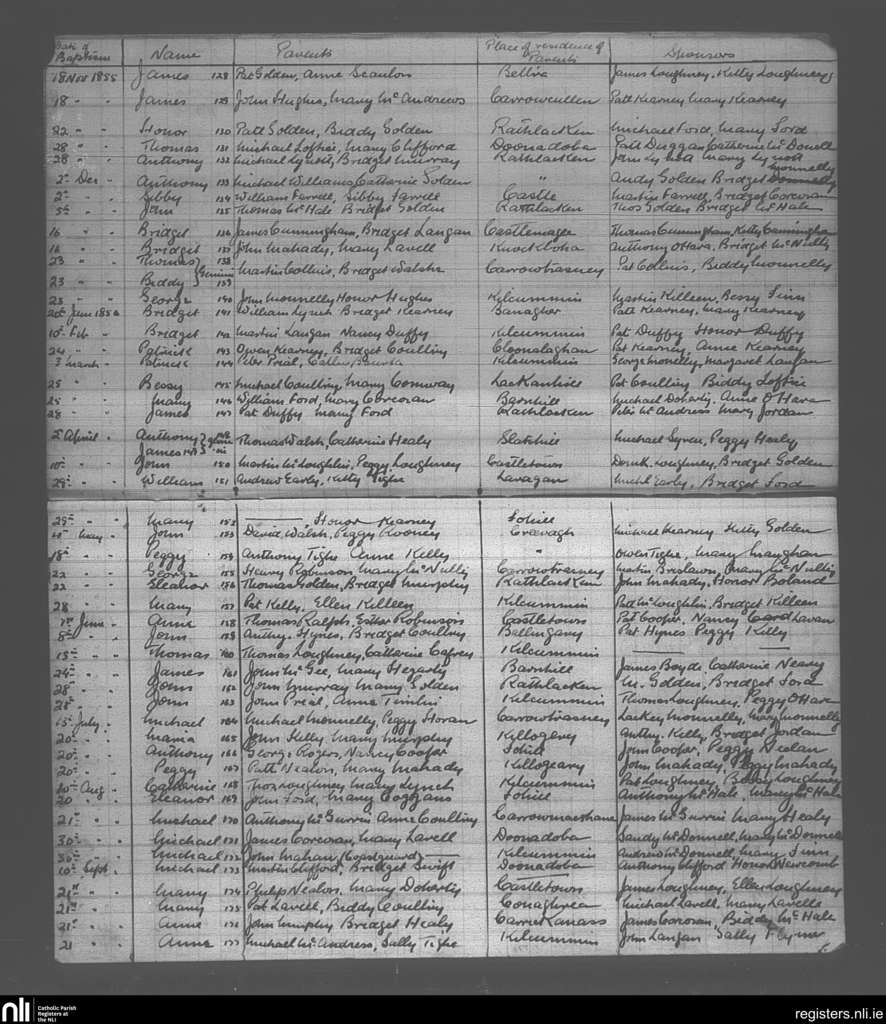 Date of Baptism Name Parents Place of residence of Parents Sponsors
18 Nov 1855 James 128 Pat Golden, Anne Scanlon Bellira James Loughney, Kitty Loughney
18 " " James 129 John Hughes, Mary McAndrews Carrowcullen Patt Kearney Mary Kearney
22 " " Honor 130 Patt Golden, Biddy Golden Rathlacken Michael Ford, Mary Ford
28 " " Thomas 131 Michael Loftus, Mary Clifford Doonadoba Patt Duggan Catherine McDonell
28 " " Anthony 132 Michael Lynott, Bridget Murray Rathlacken John Lynott Mary Lynott
2nd Dec " Anthony 133 Michael Williams Catherine Golden " Andy Golden Bridget Monnelly
2nd " " Sibby 134 William Farrell, Sibby Farrell Castle Martin Farrell, Bridget Corcoran
5th " " John 135 Thomas McHale Bridget Golden Rathlacken Thos Golden Bridget McHale
16 " " Bridget 136 James Cunningham, Bridget Langan Castlemager Thomas Cunningham, Kitty Cunningham
16 " " Bridget 137 John Mahady, Mary Lavell Knockaloha Anthony O'Hara, Bridget McNulty
23 " " Thomas 138
Gemini Martin Collins, Bridget Walshe Carrowtrasney Pat Collins, Biddy Monnelly
23 " Biddy 139
23 " " George 140 John Monnelly Honor Hughes Kilcummin Martin Killeen, Bessy Finn
20th Jan 1856 Bridget 141 William Lynch Bridget Kearney Banagher Patt Kearney, Mary Kearney
10th Feb " Bridget 142 Martin Langan Nancy Duffy Kilcummin Pat Duffy Honor Duffy
24 " " Patrick 143 Owen Kearney, Bridget Coulling Cloonalaghan Pat Kearney, Anne Kearney
3 March " Patrick 144 Peter Prial, Kilcummin George Monelly, Margaret Langan
25 " " Bessy 145 Michael Coulling, Mary Conway Lackanhill Pat Coulling Biddy Loftus
25 " " Mary 146 William Ford, Mary Corcoran Barnhill Michael Doherty, Anne O'Hara
28 " " James 147 Pat Duffy Mary Ford Rathlacken Peter McAndress Mary Jordan
2nd April " Anthony 148
gemini Thomas Walsh, Catherine Healy Slatehill Michael Syron, Peggy Healy
James 149
10th " " John 150 Martin McLoughlin, Peggy Loughney Castletown Domk. Loughney, Bridget Golden
29th " " William 151 Andrew Early, Kitty Tighe Lavagan Michl Early, Bridget Ford
29th " " Mary 152 ——— Honor Kearney Fohill
10th May " John 153 David Walsh, Peggy Rooney Creevagh Michael Kearney Kitty Golden
18th " " Peggy 154 Anthony Tighe Anne Kelly " Owen Tighe, Mary Maughan
22 " " George 155 Henry Robinson Mary McNulty Carrowtrasney Martin Mary McNulty
22 " " Eleanor 156 Thomas Golden, Bridget Murphy Rathlacken John Mahady, Honor Boland
28 " " Mary 157 Pat Kelly, Ellen Killeen Kilcummin Pat McLoughlin, Bridget Killeen
1st June " Anne 158 Thomas Ralph, Esther Robinson Castletown Pat Cooper, Nancy Lavan
8th " " John 159 Anthy. Hynes, Bridget Coulling Bellingary Pat Hynes Peggy Kelly
15th " " Thomas 160 Thomas Loughney, Catherine Cafrey Kilcummin ——— ———
24th " " James 161 John McGee, Mary Hegarty Barnhill James Boyde Catherine Neary
28th " " John 162 John Murray Mary Golden Rathlacken M. Golden, Bridget Ford
28th " " John 163 John Prial, Anne Timlin Kilcummin Thomas Loughney, Peggy O'Hara
15th July " Michael 164 Michael Monnelly, Peggy Horan Carrowtrasney Lackey Monnelly, Mary Monnelly
20th " " Maria 165 John Kelly, Mary Murphy Killogeary Anthy. Kelly, Bridget Jordan
20th " " Anthony 166 George Rogers, Nancy Cooper Fohill John Cooper, Peggy Nealon
20th " " Peggy 167 Patt Nealon, Mary Mahady Killogeary John Mahady, Peggy Mahady
10th Aug " Catherine 168 Thos Loughney Mary Lynch Kilcummin Pat Loughney, Bessy Loughney
20 " " Eleanor 169 John Ford, Mary Coggans Fohill Anthony McHale, Mary McHale
21st " " Michael 170 Anthony McGurrin Anne Coulling Carrowmacshane James McGurrin Mary Healy
30th " " Michael 171 James Corcoran, Mary Lavell Doonadoba Sandy McDonnell, Mary McDonnell
30th " " Michael 172 John Mahan (Coastguard) —— Kilcummin Andrew McDonnell, Mary Finn
10th Sept " Michael 173 Martin Clifford, Bridget Swift Doonadoba Anthony Clifford Honor Newcomb
21st " " Mary 174 Philip Nealon, Mary Doherty Castletown James Loughney, Ellen Loughney
21st " " Mary 175 Pat Lavell, Biddy Coulling Conaghrea Michael Lavell, Mary Lavelle
21st " " Anne 176 John Murphy Bridget Healy Carrickanass James Corcoran, Biddy McHale
21 " " Anne 177 Michael McAndress, Sally Tighe Kilcummin John Langan Sally Flynn
nli Catholic Parish Registers at the NLI
registers.nli.ie